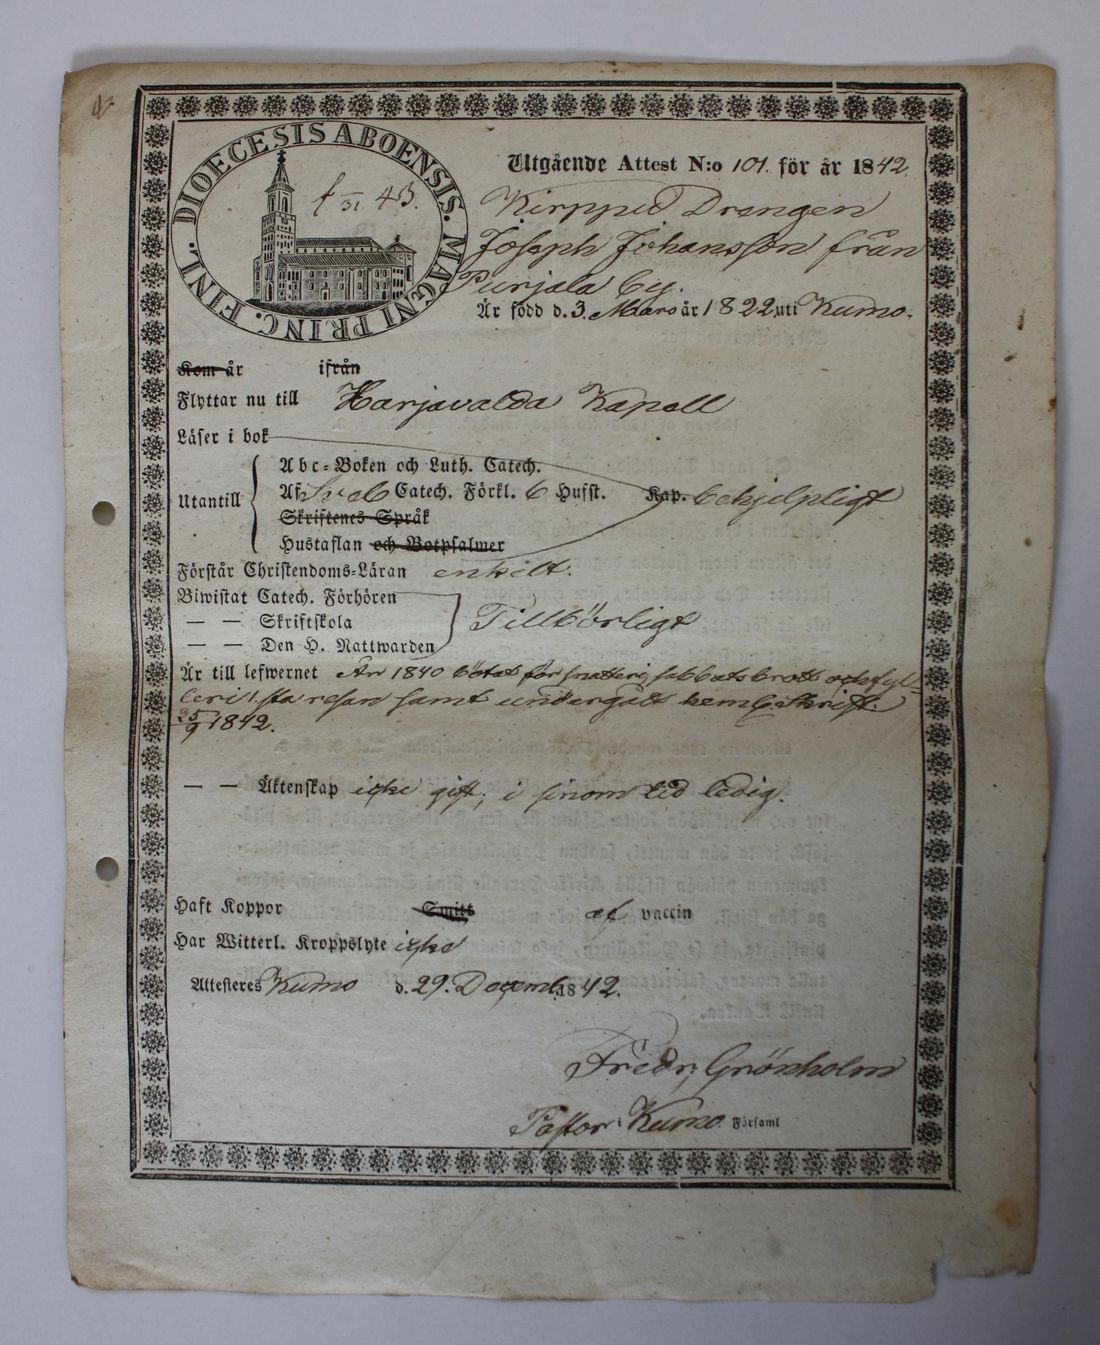 DIOECESIS ABOENSIS. MAGNI PRINC. FINL.
31 43.
Utgående Attest N:o 101. för år 1842.
Drengen
Joseph Johansson från
Purjala by.
Är född d. 3. Mars år 1822 uti Kumo.
Kom år ifrån
Flyttar nu till Harjavalda Kapell
Läser i bok
Utantill
Abc-Boken och Luth. Catech.
Af Sveb Catech. Förkl. 6 Hufst. Kap. behjelpligt
Skriftenes Språk
Hustaflan och Botpsalmer
Förstår Christendoms-Läran enkelt.
Biwistat Catech. Förhören
— — Skriftskola Tillbörligt
— — Den H. Nattwarden
Är till lefwernet År 1840 bötat för snatteri, sabbatsbrott och fyl-
leri 1sta resan samt undergått hemlig skrift.
25/9 1842.
— — Äktenskap icke gift, i sinom tid ledig.
Haft Koppor Smitt af vaccin
Har Witterl. Kroppslyte icke
Attesteres Kumo d. 29. Decemb. 1842.
Fredr. Grönholm
Pastor i Kumo Församl